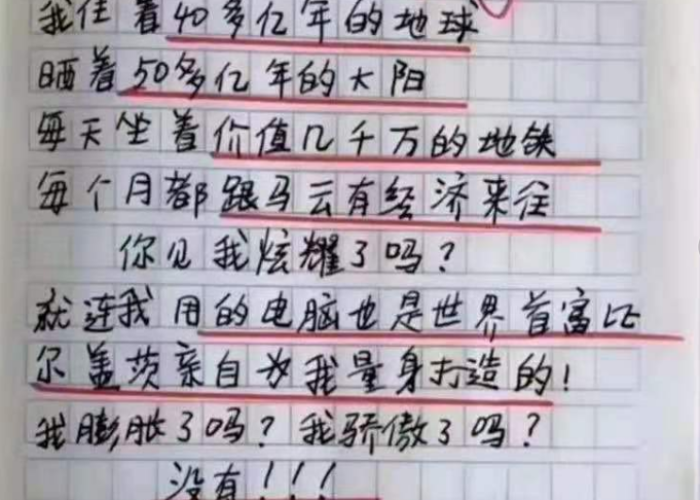 我住着40多亿年的地球
晒着50多亿年的太阳
每天坐着价值几千万的地铁
每个月都跟马云有经济来往
你见我炫耀了吗？
就连我用的电脑也是世界首富比
尔盖茨亲自为我量身打造的！
我膨胀了吗？我骄傲了吗？
没有！！！